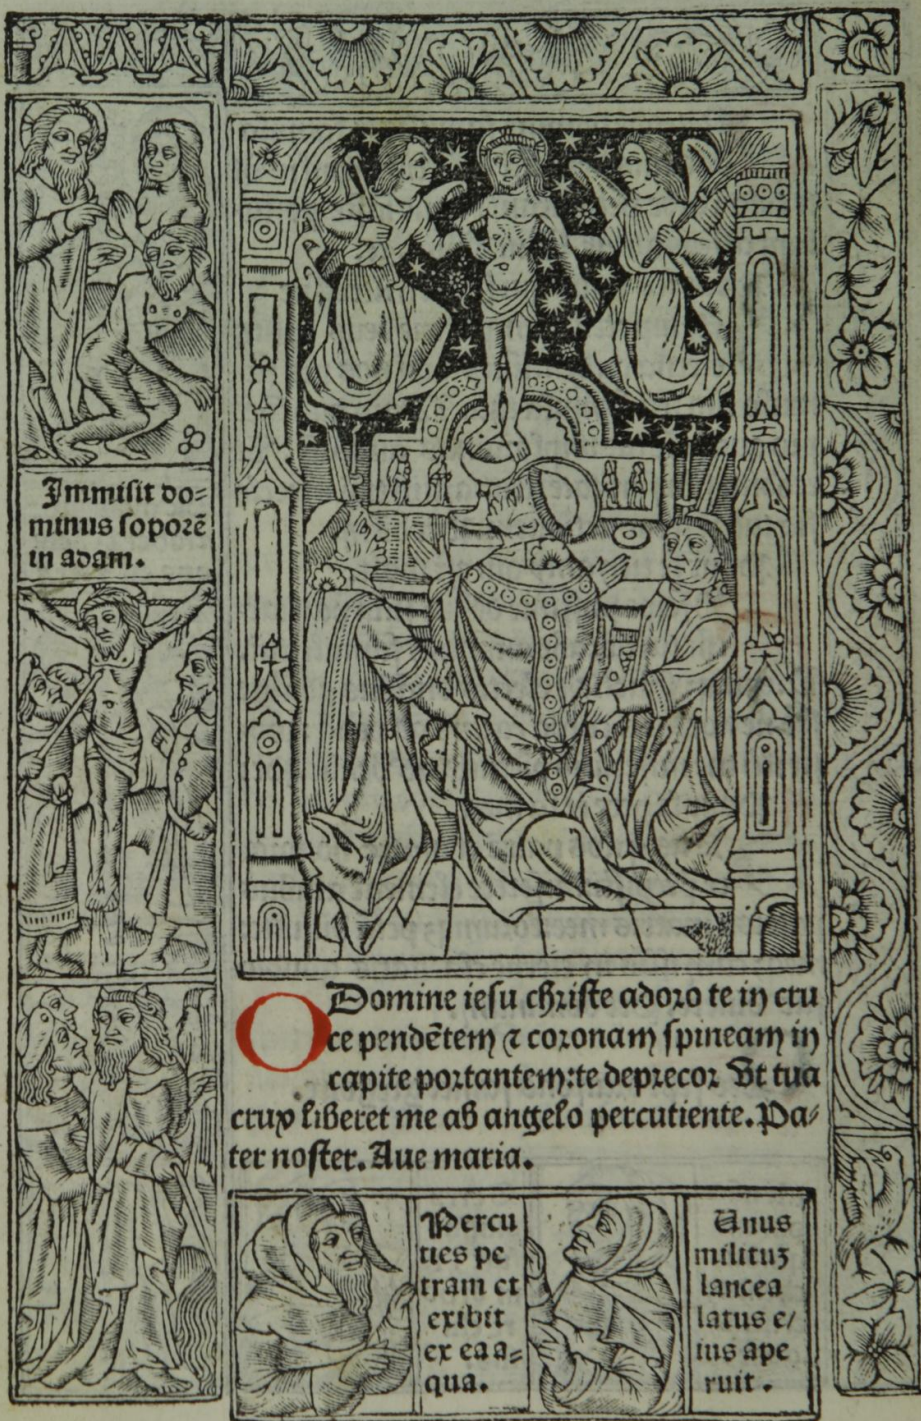 Immisit do=
minus soporē
in adam.
O Domine iesu christe adoro te in cru
ce pendētem ⁊ coronam spineam in
capite portantem: te deprecor Ut tua
crux liberet me ab angelo percutiente. Pa/
ter noster. Aue maria.
Percu
ties pe
tram et
exibit
ex ea a=
qua.
Unus
milituꝫ
lancea
latus e/
ius ape
ruit.